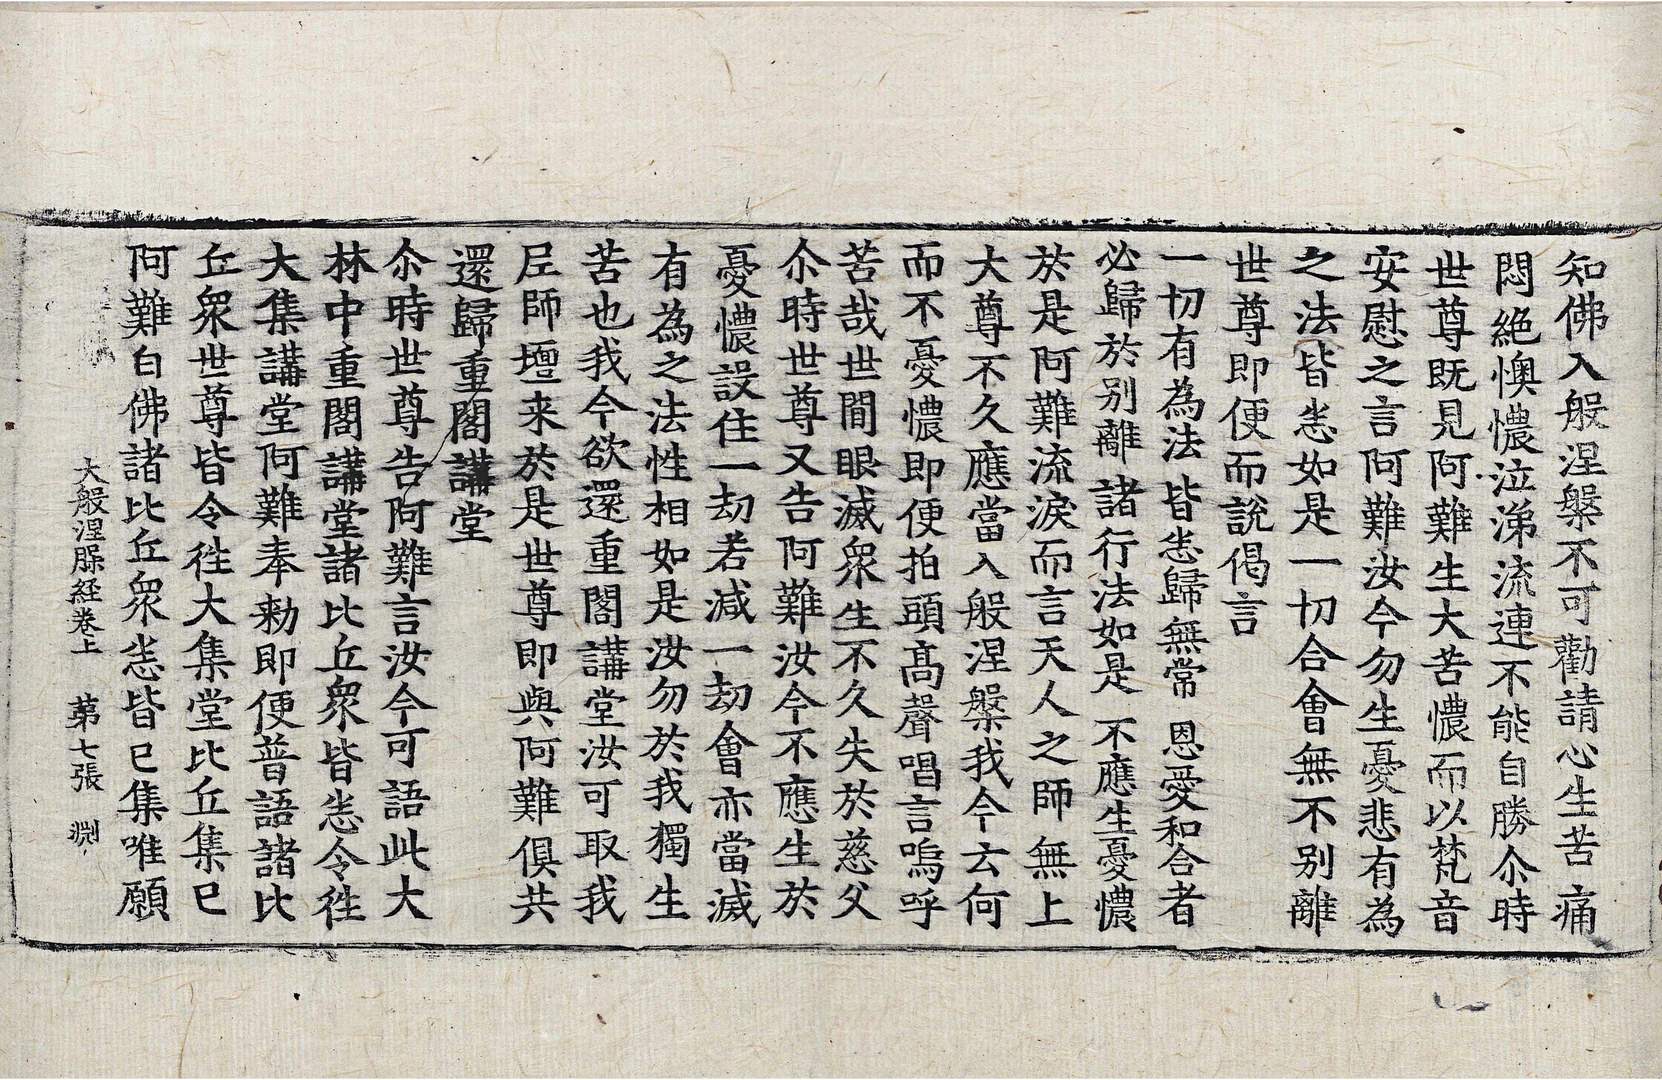 知佛入般涅槃不可勸請心生苦痛
悶絶懊憹泣涕流連不能自勝尒時
世尊既見阿難生大苦憹而以梵音
安慰之言阿難汝今勿生憂悲有為
之法皆悉如是一切合會無不別離
世尊即便而說偈言
一切有為法 皆悉歸無常 恩愛和合者
必歸於別離 諸行法如是 不應生憂憹
於是阿難流淚而言天人之師無上
大尊不久應當入般涅槃我今云何
而不憂憹即便拍頭高聲唱言嗚呼
苦哉世間眼滅衆生不久失於慈父
尒時世尊又告阿難汝今不應生於
憂憹設住一劫若減一劫會亦當滅
有為之法性相如是汝勿於我獨生
苦也我今欲還重閣講堂汝可取我
尼師壇来於是世尊即與阿難俱共
還歸重閣講堂
尒時世尊告阿難言汝今可語此大
林中重閣講堂諸比丘衆皆悉令徃
大集講堂阿難奉勅即便普語諸比
丘衆世尊皆令徃大集堂比丘集已
阿難白佛諸比丘衆悉皆已集唯願
大般涅槃経卷上 第七張 渕